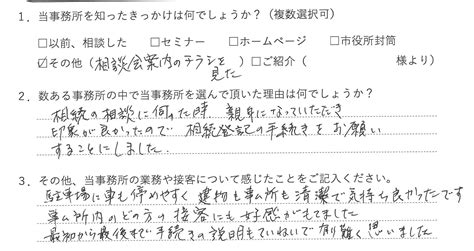 1．当事務所を知ったきっかけは何でしょうか？（複数選択可）
□以前、相談した　□セミナー　□ホームページ　□市役所封筒
☑その他（相談会案内のチラシを見た）□ご紹介（　　　　　様より）
2．数ある事務所の中で当事務所を選んで頂いた理由は何でしょうか？
相続の相談に伺った時、親身になっていただき
印象が良かったので　相続登記の手続きをお願い
することにしました．
3．その他、当事務所の業務や接客について感じたことをご記入ください。
駐車場に車も停めやすく　建物も事ム所も清潔で気持ち良かったです
事ム所内のどの方の接客にも好感がもてました
最初から最後まで手続きの説明もていねいで有り難く思いました